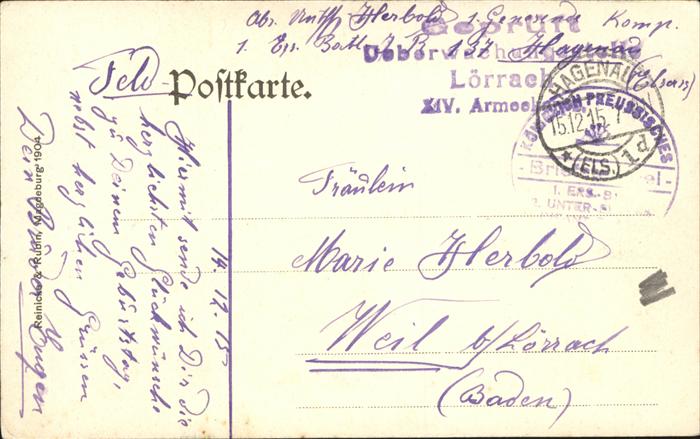 Abs. Untff. Herbold 1. Genesende Komp.
1. Ers. Batl. I. R. 137 Hagenau
(Elsass)
Geprüft
Ueberwachungsstelle
Lörrach
XIV. Armee
Feld-Postkarte.
HAGENAU
15.12.15. 7
* (ELS.) 1d
KÖNIGLICH PREUSSISCHES
Brief
1. ERS.-B
2. UNTER-
14. 12. 15
Hiermit sende ich Dir die
herzlichsten Glückwünsche
zu Deinem Geburtstag,
nebst herzlichen Grüssen
Dein Bruder Eugen
Reinicke & Rubin, Magdeburg 1904
Fräulein
Marie Herbold
Weil b/Lörrach
(Baden)